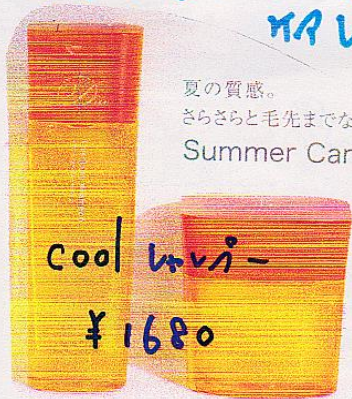 ケアし
夏の質感。
さらさらと毛先までな
Summer Car
cool シャンプー
¥1680